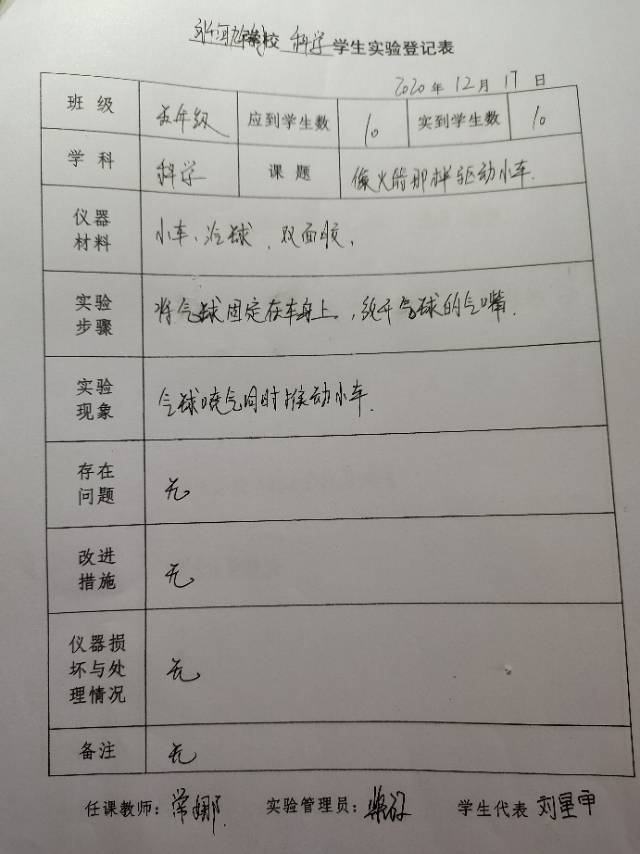 校 科学 学生实验登记表
2020年12月17日
班级 五年级 应到学生数 10 实到学生数 10
学科 科学 课题 像火箭那样驱动小车.
仪器材料 小车、气球、双面胶。
实验步骤 将气球固定在车身上,,松开气球的气嘴.
实验现象 气球喷气同时推动小车.
存在问题 无
改进措施 无
仪器损坏与处理情况 无
备注 无
任课教师: 常娜 实验管理员: 学生代表